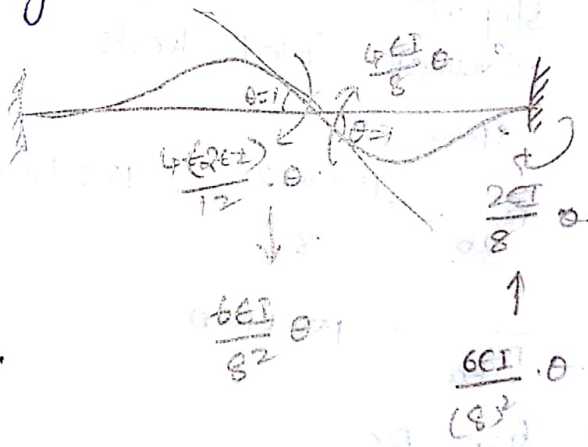 4EI/8 θ
θ=1
θ=1
4E(2I)/12 . θ
2EI/8 θ
6EI/8² θ
6EI/(8)² .θ